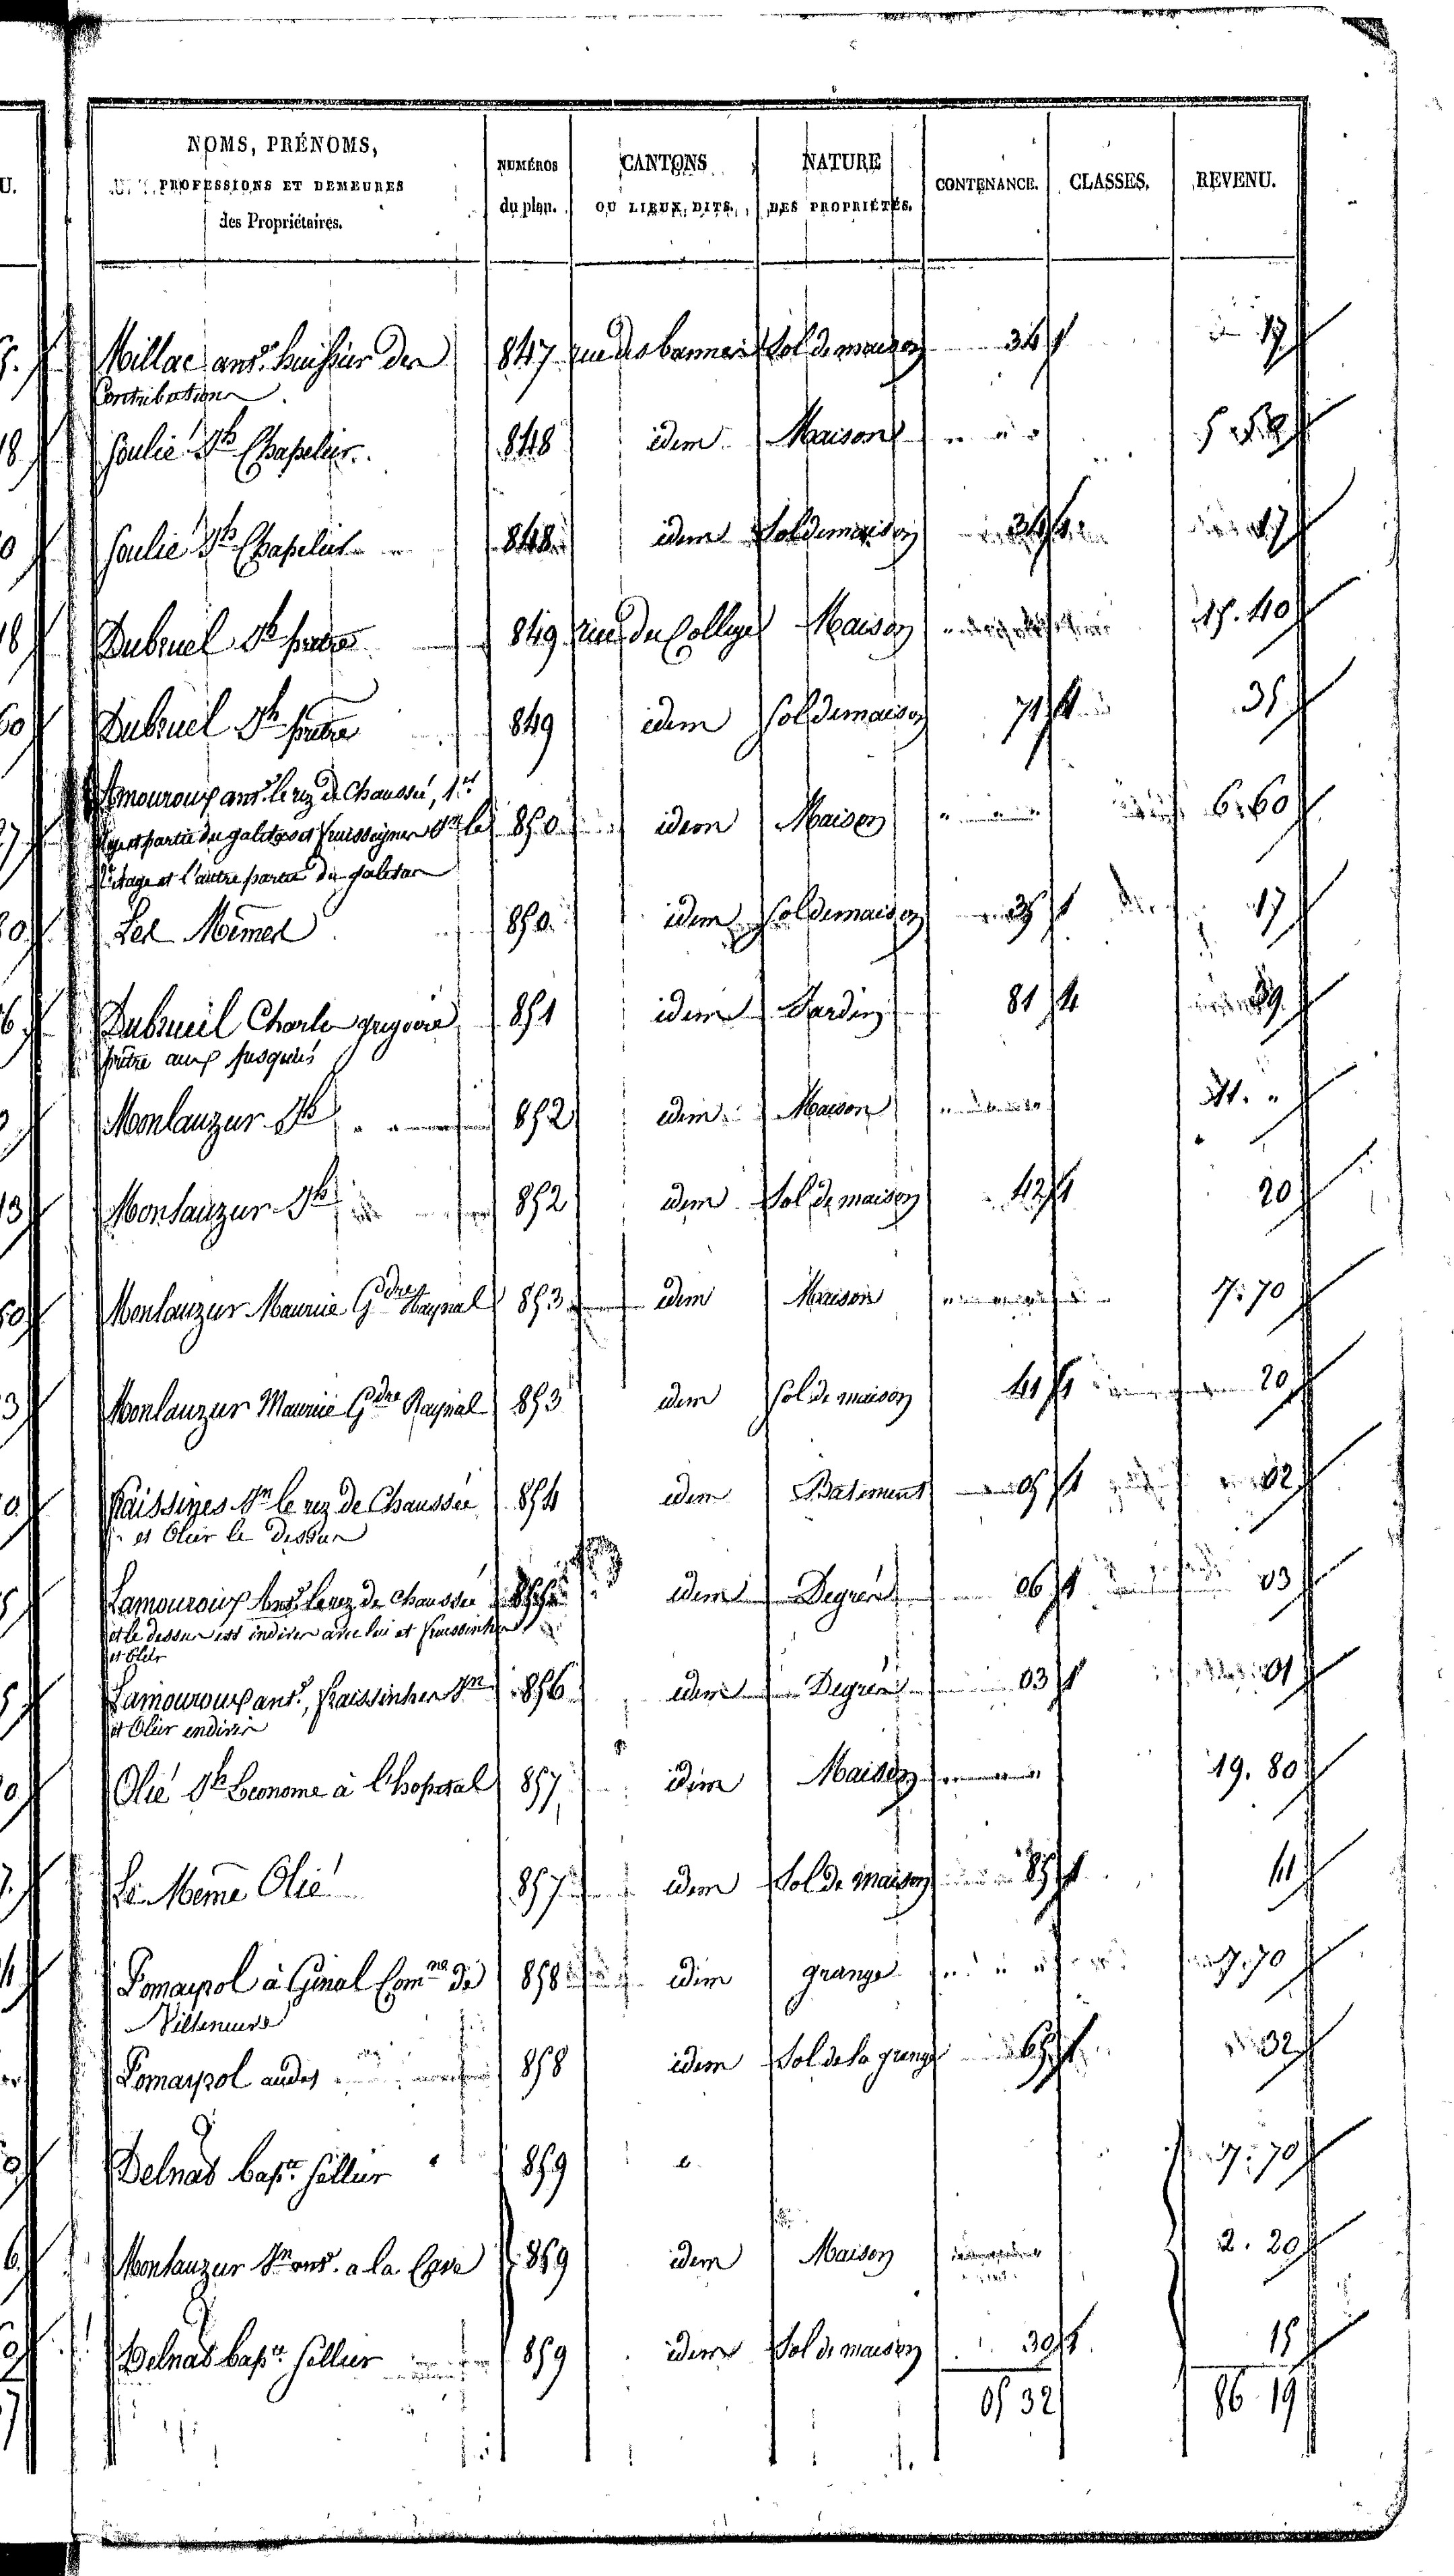 NOMS, PRÉNOMS,
PROFESSIONS ET DEMEURES
des Propriétaires.
NUMÉROS
du plan.
CANTONS
OU LIEUX DITS.
NATURE
DES PROPRIÉTÉS.
CONTENANCE.
CLASSES.
REVENU.
Millac ant. huissier des 847 rue des Sol de maison 34 1 17
Contributions
Soulié Jh Chapelier 848 idem Maison 5
Soulié Jh Chapelier 848 idem Sol de maison 34 1 17
Dubruel Jh prêtre 849 rue du College Maison 15.40
Dubruel Jh prêtre 849 idem Sol de maison 71 1 35
Amouroux ant. le rez de Chaussée, 1er
et partie du galetas et le 850 idem Maison 6.60
étage et l'autre partie du galetas
Les Mêmes 850 idem Sol de maison 35 1 17
Dubruel Charles gregoire 851 idem Jardin 81 39
prêtre aux
Monlauzur Jh 852 idem Maison 11. "
Monlauzur Jh 852 idem Sol de maison 42 1 20
Monlauzur Maurice Gdre Raynal 853 idem Maison 7.70
Monlauzur Maurice Gdre Raynal 853 idem Sol de maison 41 1 20
Jn le rez de Chaussée 854 idem Batiment 05 1 02
et Olier le dessus
Lamouroux ant. le rez de chaussée 855 idem Degrés 06 1 03
et le dessus est indivis avec lui et
et Olier
Lamouroux ant., Jn 856 idem Degrés 03 1 01
et Olier indivis
Olié Jh Econome à l'hopital 857 idem Maison 19.80
Le Même Olié 857 idem Sol de maison 85 1 41
Pomayrol à Ginal Comne de 858 idem grange 7.70
Villeneuve
Pomayrol audit 858 idem Sol de la grange 65 1 32
Delnas bapte Sellier 859 7.70
Monlauzur Jn ant. a la Cave 859 idem Maison 2.20
Delnas bapte Sellier 859 idem Sol de maison 30 1 15
05 32 86 19